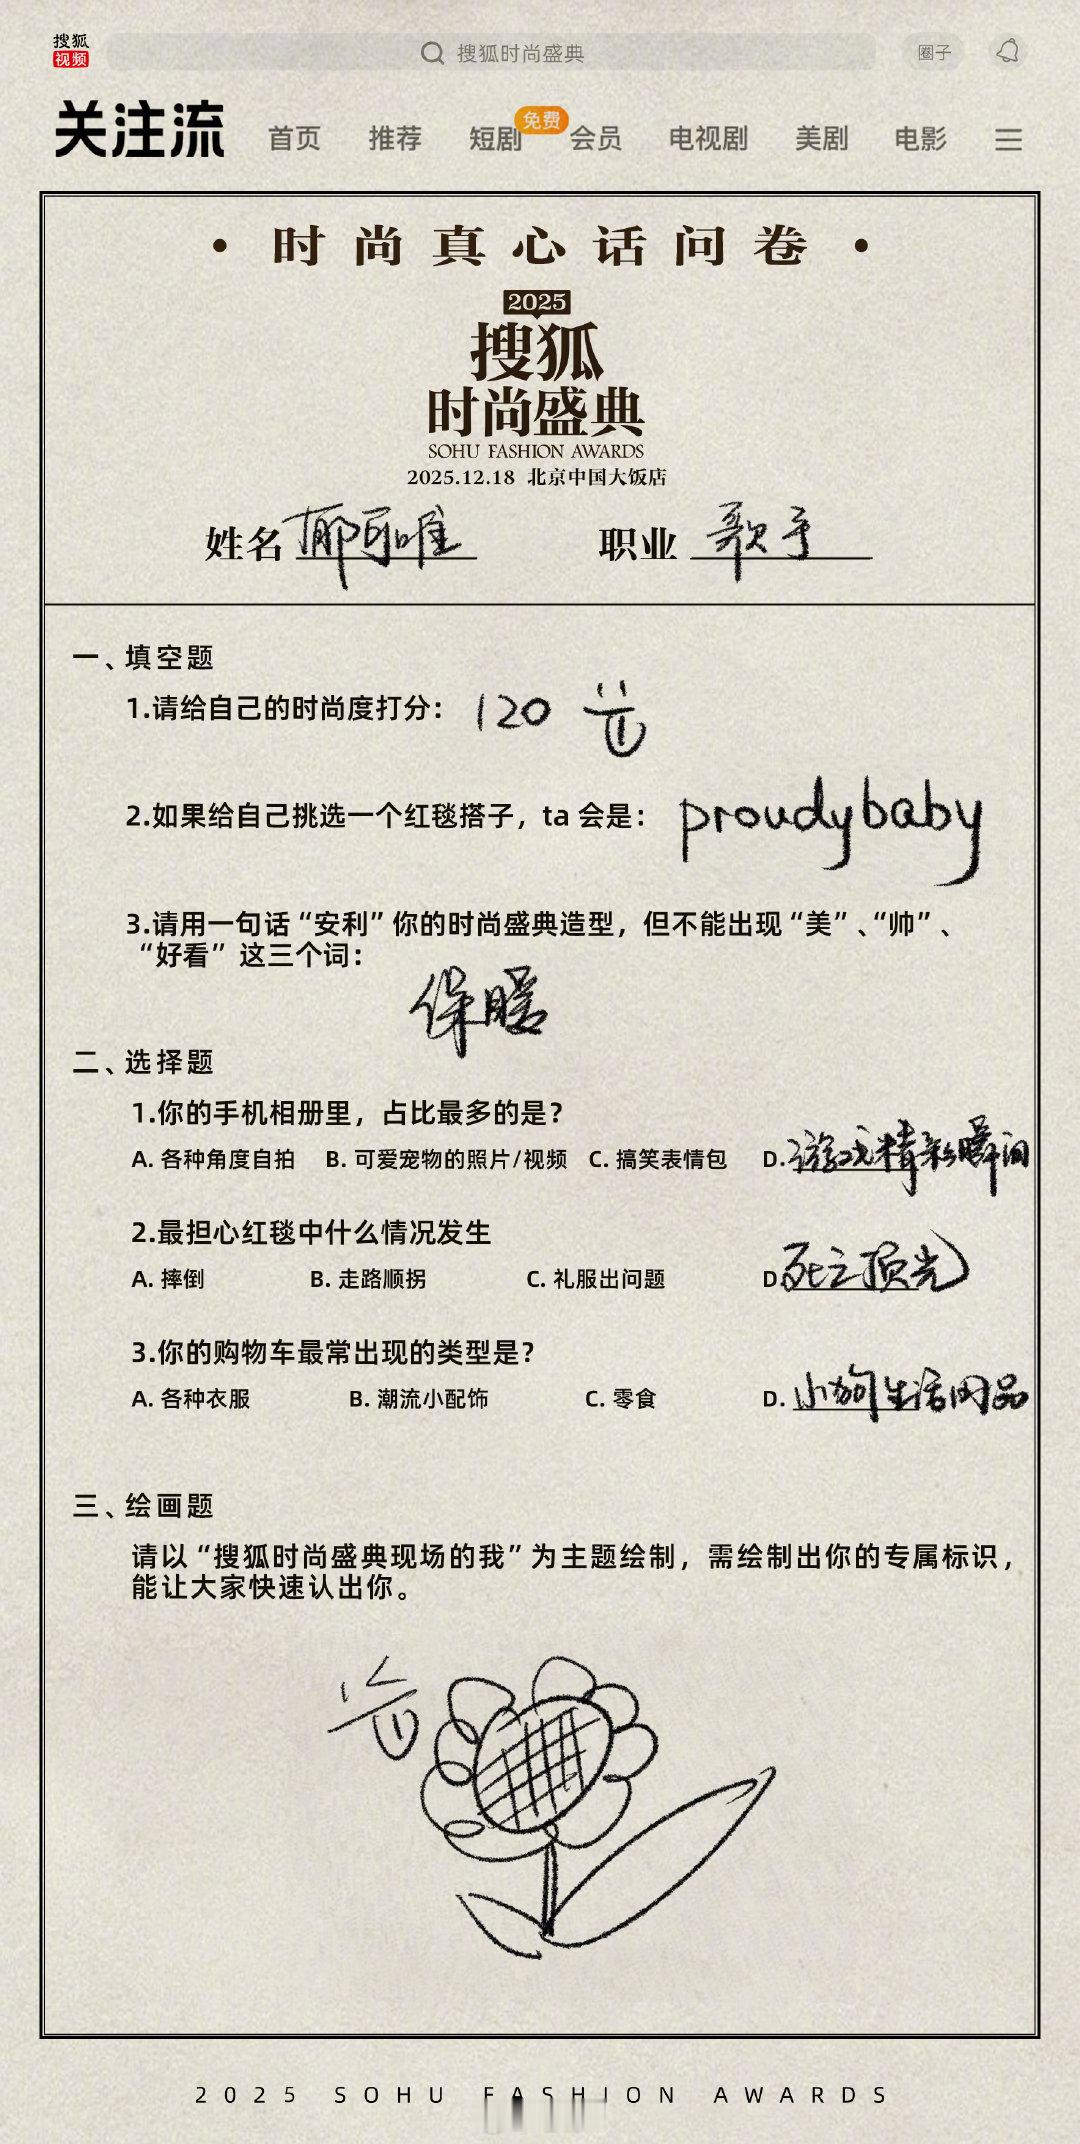 搜狐
视频
搜狐时尚盛典
圈子
关注流 首页 推荐 短剧 免费 会员 电视剧 美剧 电影
·时尚真心话问卷·
2025
搜狐
时尚盛典
SOHU FASHION AWARDS
2025.12.18 北京中国大饭店
姓名 郁可唯 职业 歌手
一、填空题
1.请给自己的时尚度打分：120
2.如果给自己挑选一个红毯搭子，ta 会是：proudybaby
3.请用一句话“安利”你的时尚盛典造型，但不能出现“美”、“帅”、
“好看” 这三个词：
保暖
二、选择题
1.你的手机相册里，占比最多的是？
A. 各种角度自拍 B. 可爱宠物的照片/视频 C. 搞笑表情包 D. 游戏精彩瞬间
2.最担心红毯中什么情况发生
A. 摔倒 B. 走路顺拐 C. 礼服出问题 D. 死亡损光
3.你的购物车最常出现的类型是？
A. 各种衣服 B. 潮流小配饰 C. 零食 D. 小狗生活用品
三、绘画题
请以“搜狐时尚盛典现场的我”为主题绘制，需绘制出你的专属标识，
能让大家快速认出你。
2025 SOHU FASHION AWARDS